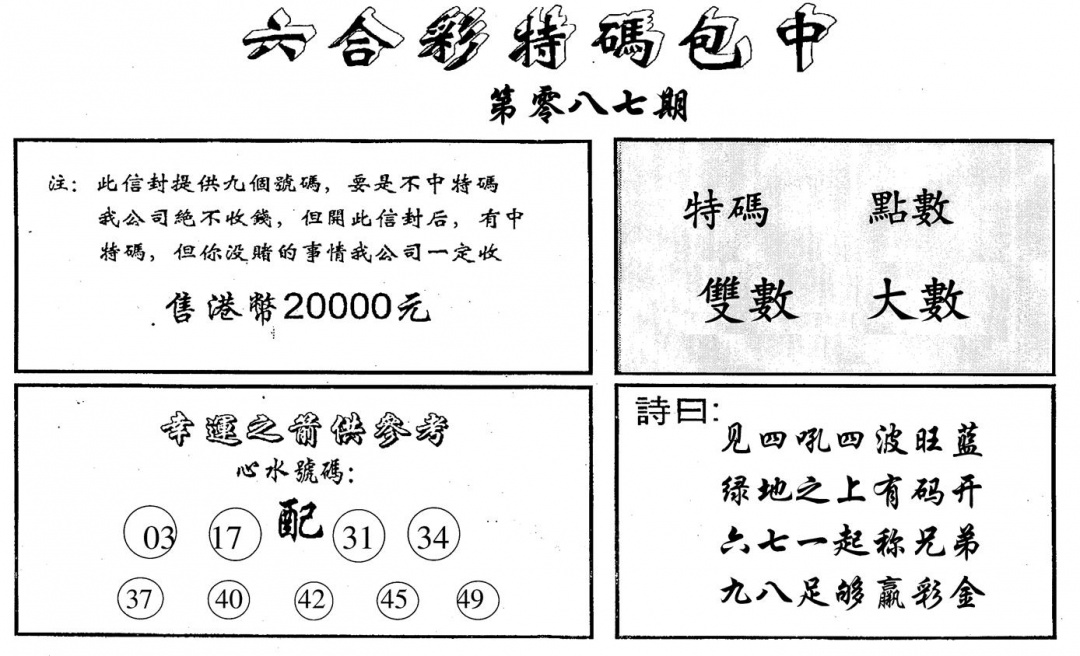 六合彩特碼包中
第零八七期
注：此信封提供九個號碼，要是不中特碼
我公司絶不收錢，但開此信封后，有中
特碼，但你没賭的事情我公司一定收
售港幣20000元
特碼 點數
雙數 大數
幸運之箭供參考
心水號碼：
03 17 配 31 34
37 40 42 45 49
詩曰：
见四吼四波旺蓝
绿地之上有码开
六七一起称兄弟
九八足够赢彩金